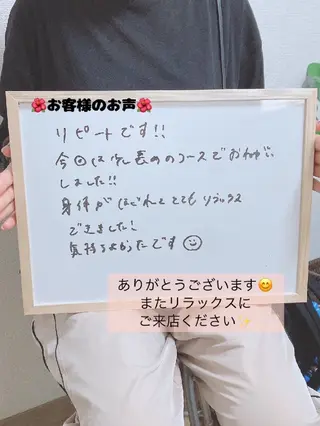 🌺お客様のお声🌺
リピートです!!
今回は少し長めのコースでおねがい
しました!!
身体がほぐれてとてもリラックス
できました!
気持ちよかったです☺
ありがとうございます😊
またリラックスに
ご来店ください✨